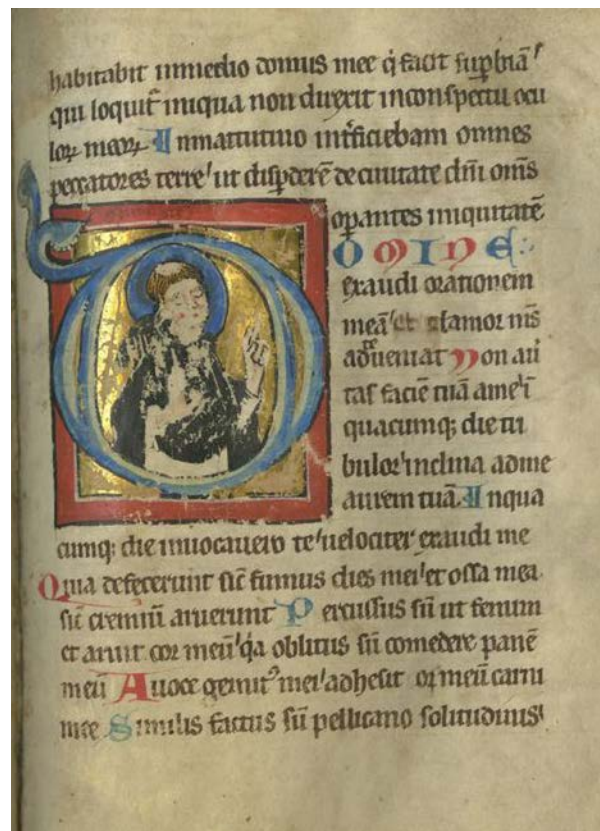 habitabit inmedio domus mee q̇ facit suꝑbiā
qui loquit᷑ iniqua non direxit inconspectu ocu
loꝝ meoꝝ In matutino int᷑ficiebam omnes
peccatores terre ut disꝑderē de ciuitate dn̄i om̄s
oꝑantes iniquitatē
DOMINE
exaudi orationem
meā et clamor m̄s
ad te ueniat Non au᷑
tas faciē tuā ame ī
quacumq; die t᷑i
bulor inclina ad me
aurem tuā In qua
cumq; die inuocauero te uelociter exaudi me
Quia defecerunt sic̄ fumus dies mei et ossa mea
sic̄ cremiū aruerunt Percussus sū ut fenum
et aruit cor meū q̇a oblitus sū comedere panē
meū A uoce gemit᷒ mei adhesit os meū carni
mee Similis factus sū pellicano solitudinis